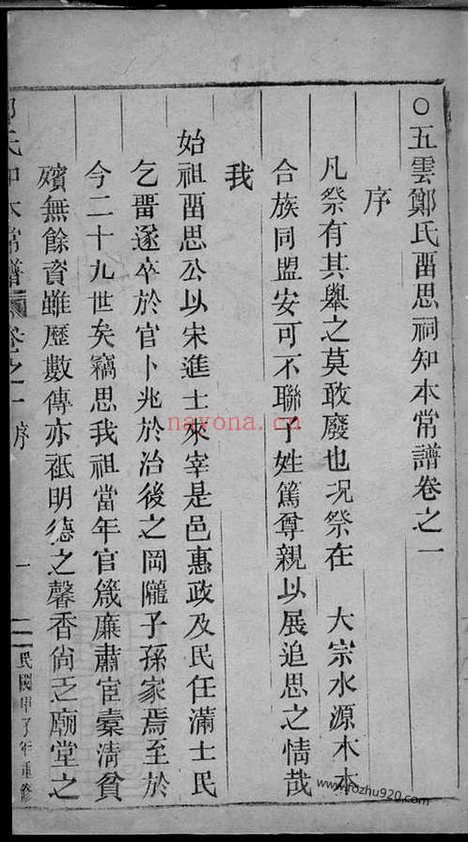 ○五雲鄭氏畱思祠知本常譜卷之一
序
凡祭有其舉之莫敢廢也况祭在 大宗水源木本
合族同盟安可不聯子姓篤尊親以展追思之情哉
我
始祖畱思公以宋進士來宰是邑惠政及民任滿士民
乞畱遂卒於官卜兆於治後之岡隴子孫家焉至於
今二十九世矣竊思我祖當年官箴廉肅宦橐清貧
殯無餘資雖歷數傳亦祗明德之馨香尚乏廟堂之
知本常譜 卷之一 序 一 民國甲子年重修
nayona.cn
www.fozhu920.com